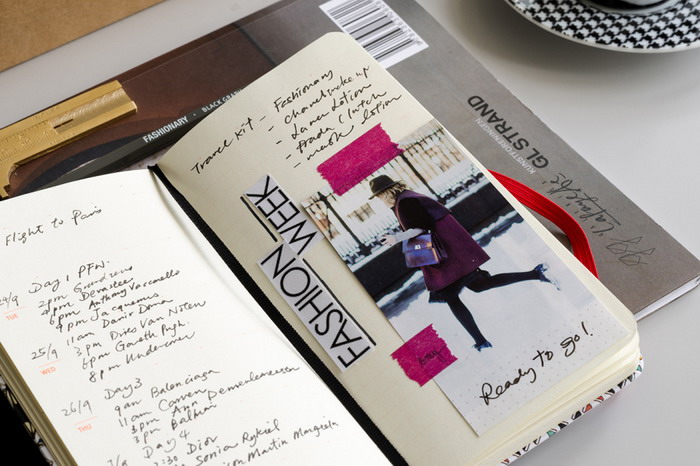 Flight to Paris
24/9
TUE
Day 1 PFW.
2pm
6pm Anthony Vaccarello
9pm Jacquemus
25/9
WED
11am Damir Doma
3pm Dries Van Noten
6pm Gareth Pugh.
8pm Undercover
26/9
THU
Day 3
9am Balenciaga
11am Carven
3pm Ann Demeulemeester
3pm Balmain
Day 4
2:30 Dior
Sonia Rykiel
Martin Margiela
Travel kit - Fashionary
- Chanel make up
- Laner Lotion
- Prada Clutch
- mask lotion
FASHION WEEK
Ready to go!
FASHIONARY • BLACK
KUNSTFORENINGEN
GL STRAND